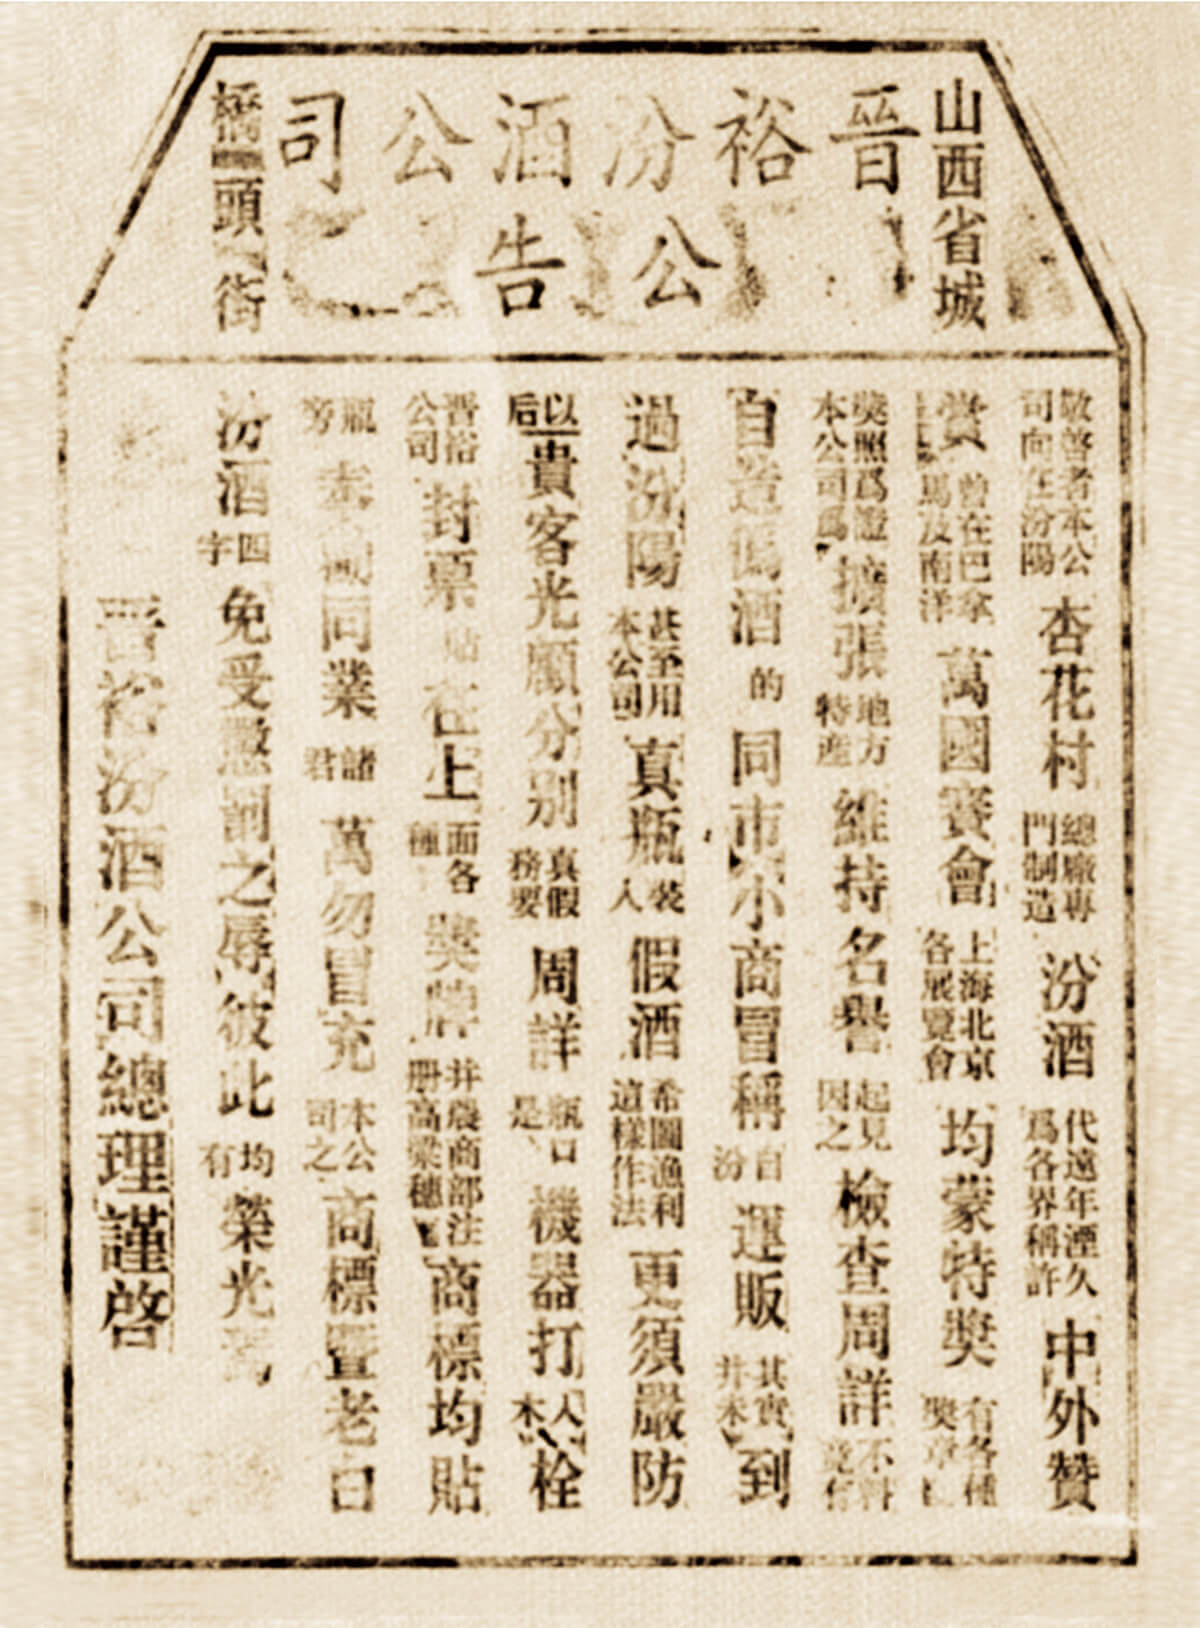 山西省城
晉裕汾酒公司
公告
橋頭街
敬啓者本公司向在汾陽杏花村總廠專門制造汾酒代遠年湮久爲各界稱許中外贊
賞曾在巴拿馬及南洋萬國賽會上海北京各展覽會均蒙特獎有各種獎章
獎照爲證本公司爲擴張地方特產維持名譽起見因之檢查周詳不料竟有
自造僞酒的同市奸小商冒稱自汾運販其實并未到
過汾陽甚至用本公司真瓶裝人假酒希圖漁利這樣作法更須嚴防
以后貴客光顧分別真假務要周詳瓶口是機器打人木栓
晋裕公司封票貼在上面各種獎牌并農商部注册高粱穗商標均貼
瓶旁同業諸君萬勿冒充本公司之商標暨老白
汾酒四字免受懲罰之辱彼此均有榮光焉
晋裕汾酒公司總理謹啓